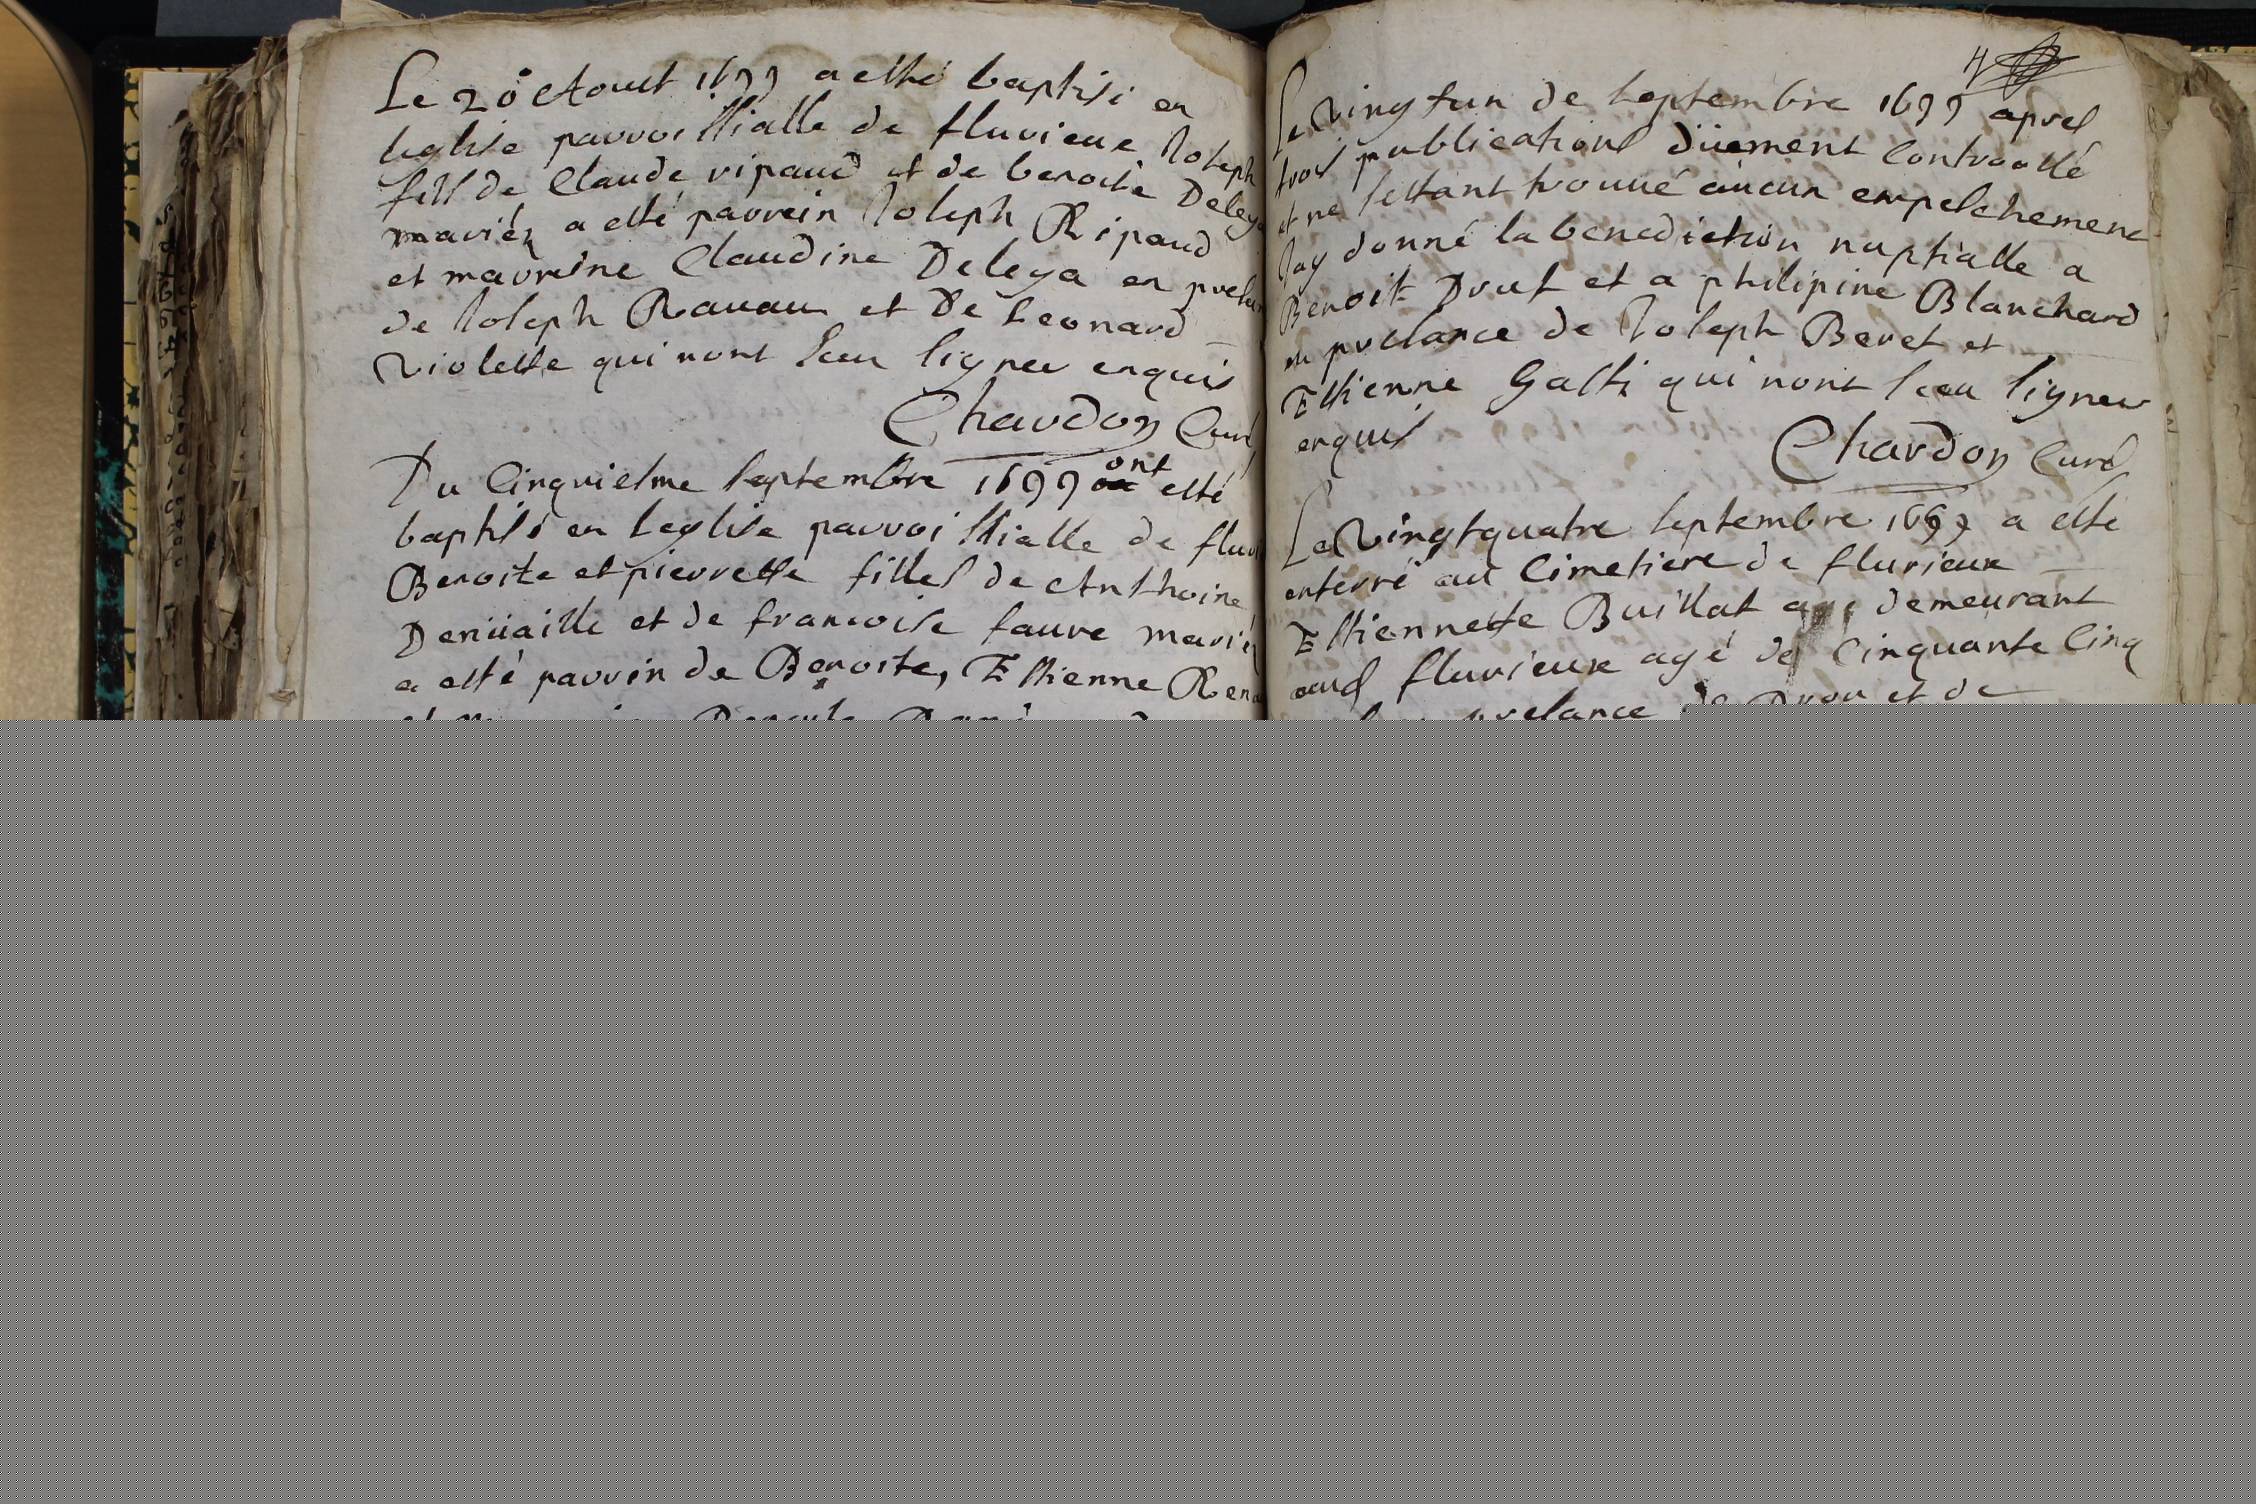 Le 20e Aoust 1699 a esté baptisé en
leglise parroissialle de flurieux Joseph
fils de Claude ripaud et de benoite Deleya
mariéz a esté parrein Joseph Ripaud
et marreine Claudine Deleya en
de Joseph Ravau et De Leonard
violette qui nont sceu signer enquis
Chardon Curé
Du Cinquiesme septembre 1699 ont esté
baptisé en leglise parroissialle de
Benoite et pierrette filles de Anthoine
Denüaille et de francoise faure mariéz
a esté parrin de Benoite, Estienne
4
Le vingt un de septembre 1699 apres
trois publications düement controollé
et ne sestant trouué aücun empeschement
Jay donné la benediction nuptialle a
Benoit Drut et a philipine Blanchard
en presance de Joseph Beret et
Estienne Galti qui nont sceu signer
enquis
Chardon Curé
Le vingtquatre septembre 1699 a esté
enterré au Cimetiere de flurieux
Estiennette Buillat demeurant
aud flurieux agé de Cinquante Cinq
presance de et de